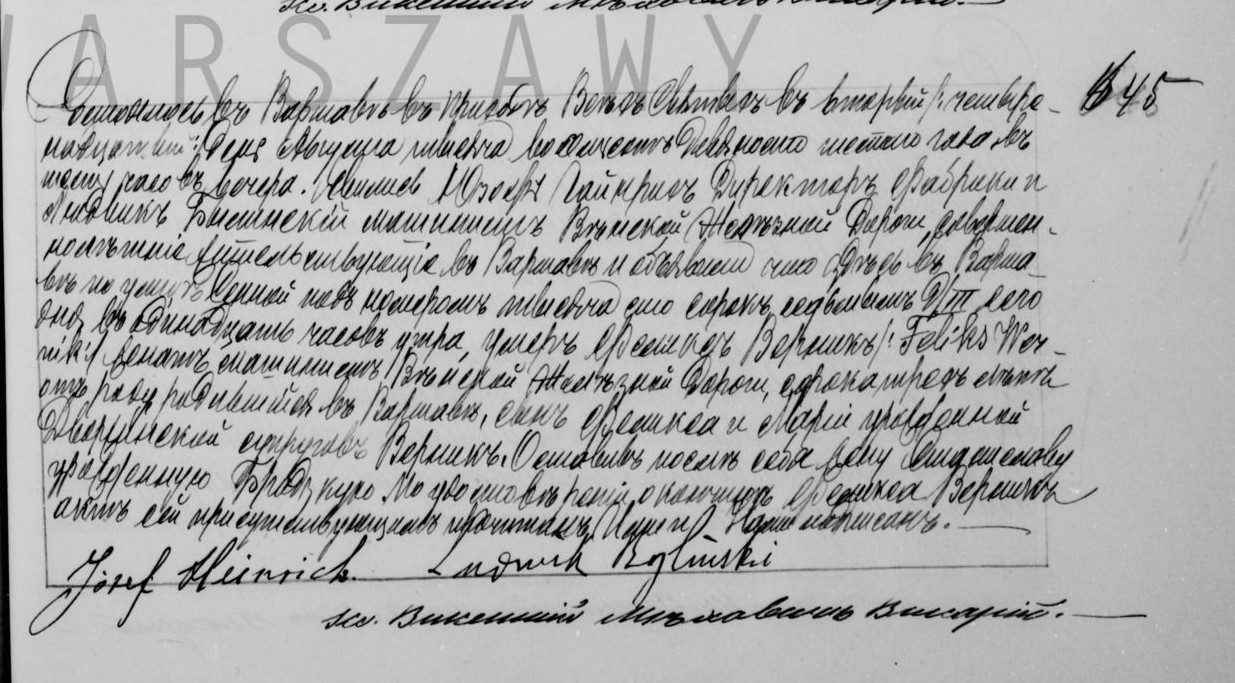 Кс. Викентий Мѣховичъ Викарій.
WARSZAWY
Состоялось въ Варшавѣ въ приходѣ Всѣхъ Святыхъ въ второй /: четыре-
надцатый :/ день Августа тысяча восемьсотъ девяносто шестого года въ
часовъ вечера. Явились Юзефъ Гайнрихъ Директоръ Фабрики и
Людвикъ машинистъ Вѣнской Желѣзной Дороги, совершен-
нолѣтніе жительствующіе въ Варшавѣ и объявили что здѣсь въ Варша-
вѣ по улицѣ Сенной подъ номеромъ тысяча сто сорокъ седьмымъ D/III сего
дня въ одинадцать часовъ утра, умеръ Феликсъ Верникъ /: Feliks Wer-
nik :/ женатъ машинистъ Вѣнской Желѣзной Дороги, сорока трехъ лѣтъ
отъ роду родившійся въ Варшавѣ, сынъ Феликса и Маріи урожденной
Двержинской супруговъ Верникъ. Оставивъ послѣ себя жену Станиславу
урожденную По удостовѣреніи о кончинѣ Феликса Верника
актъ сей присутствующимъ прочитанъ, Нами подписанъ.
Józef Heinrich. Ludwik
Кс. Викентий Мѣховичъ Викарій.
№ 45